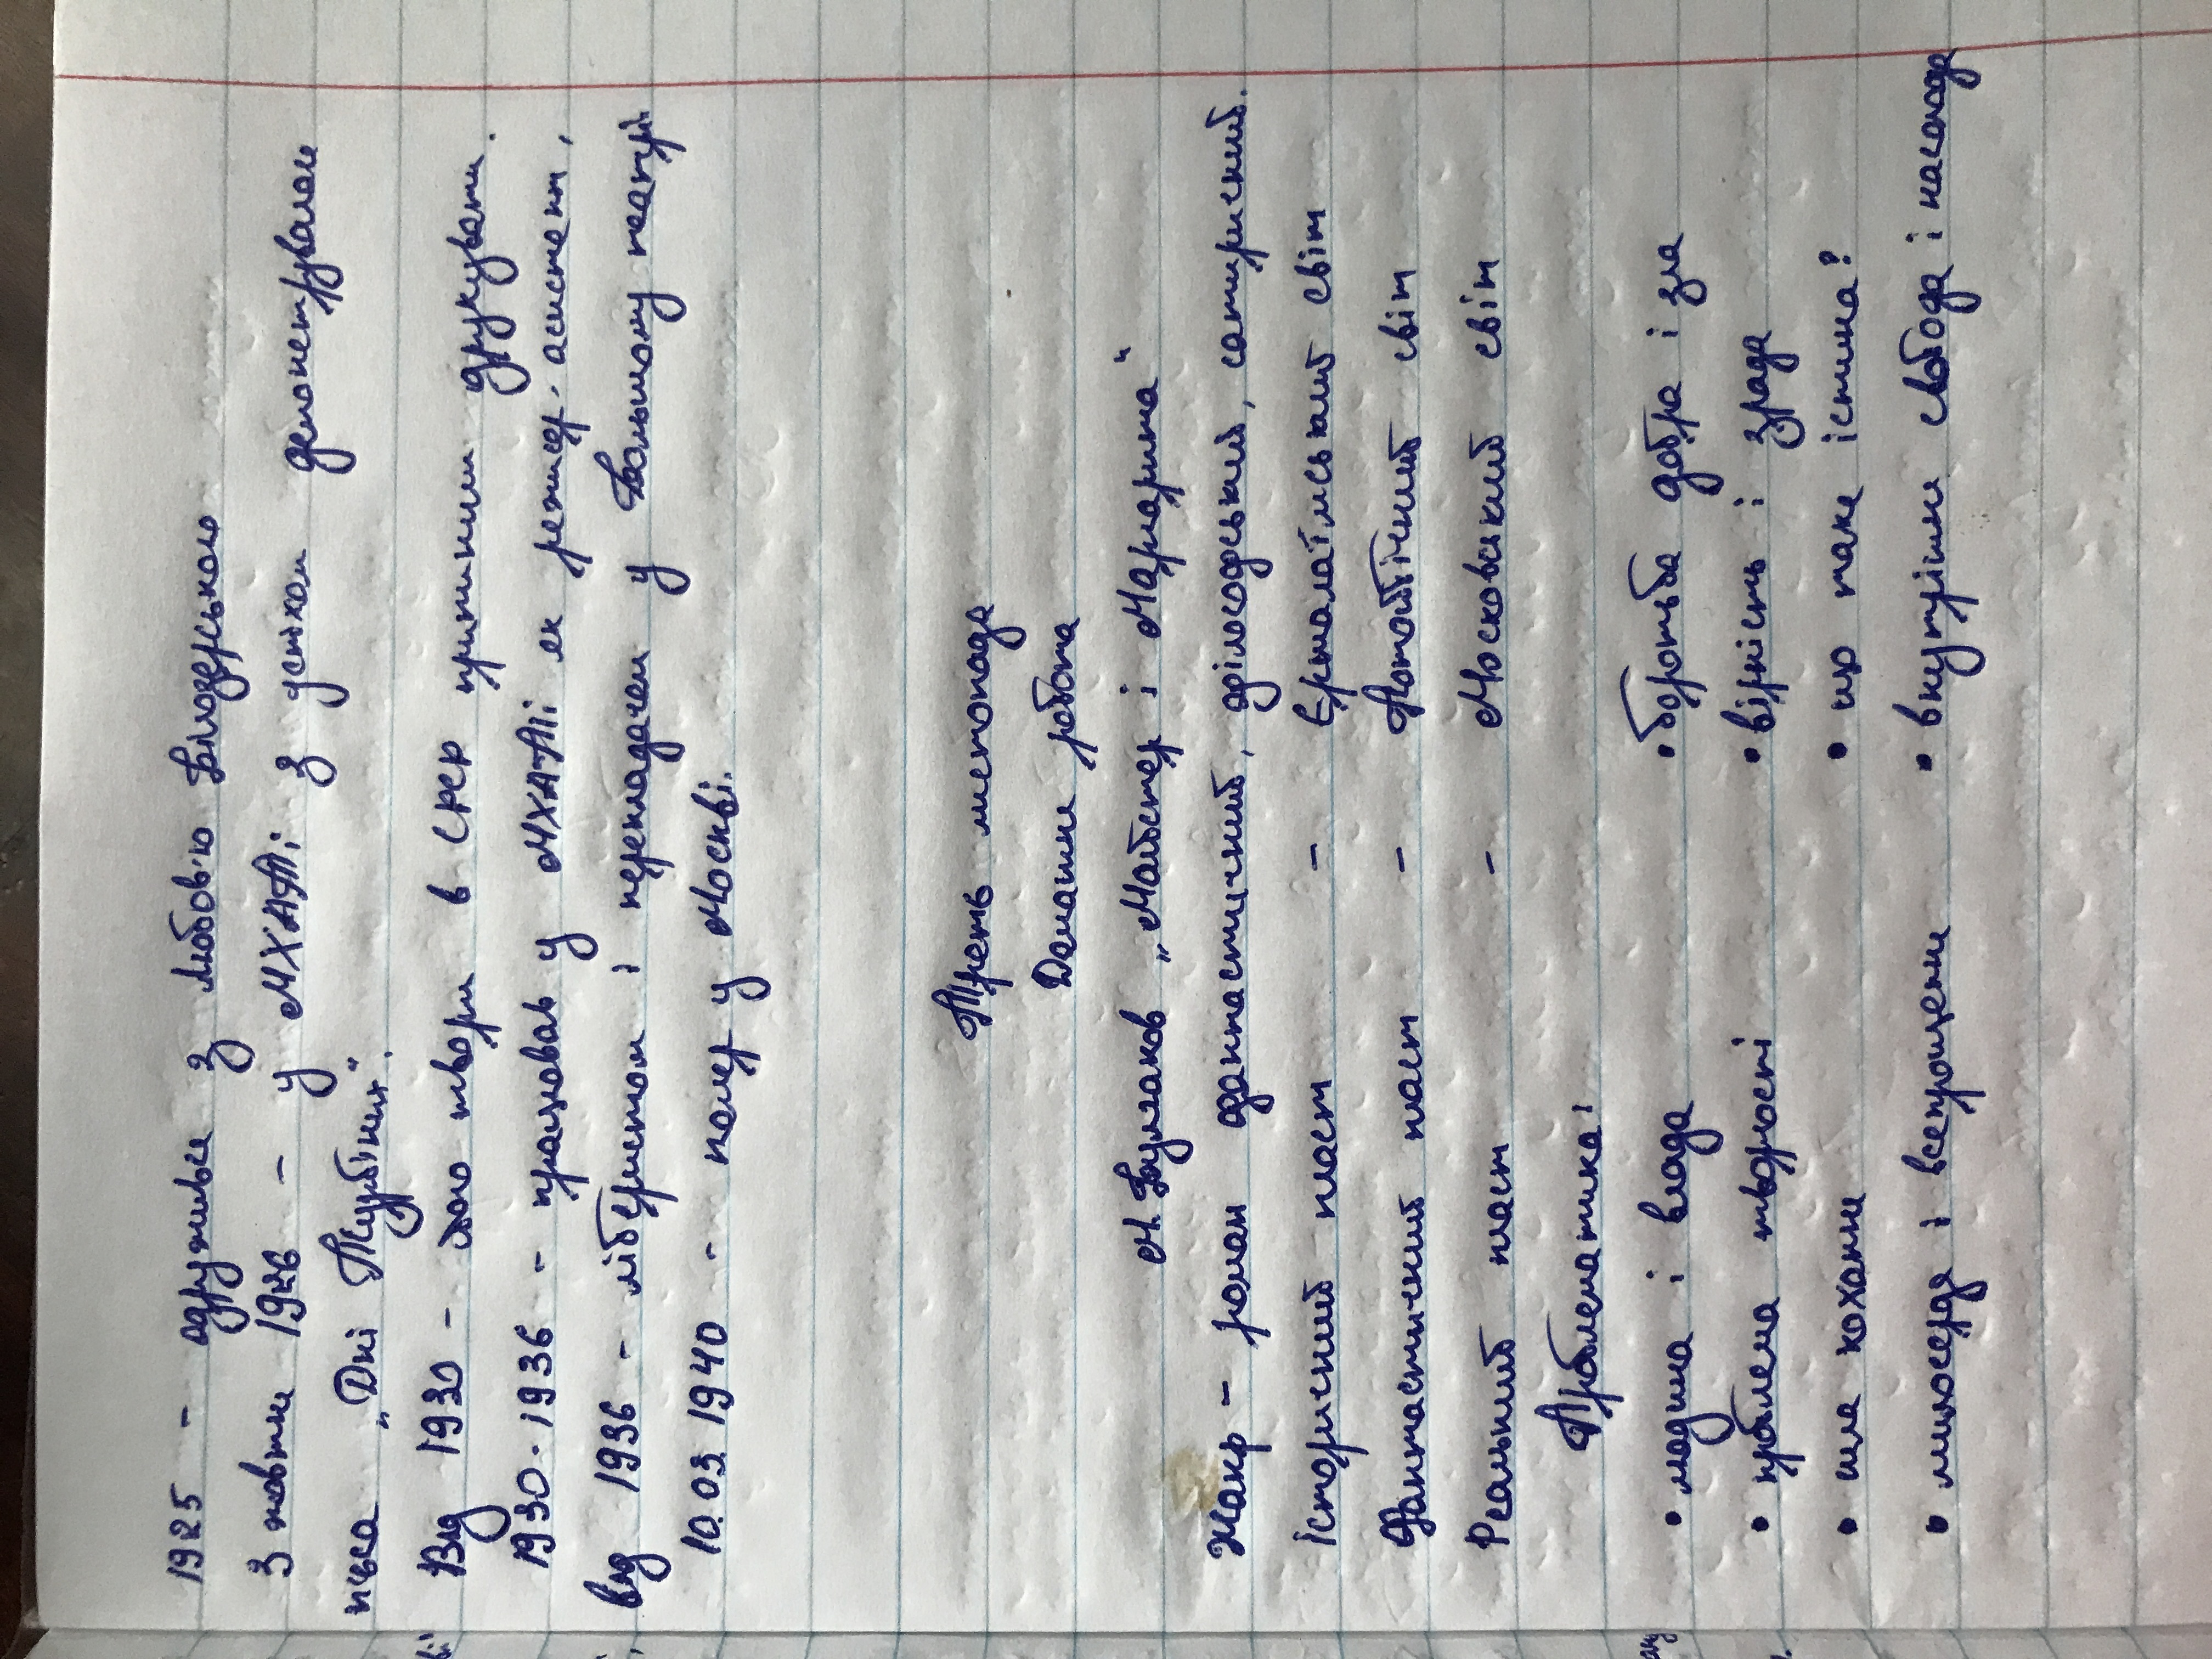 1925 - одруживсь з Любов'ю Білозерською
З жовтня 1926 - у МХАТі з успіхом демонстрували
п'єса „Дні Турбіних".
Від 1930 - його твори в СРСР припинили друкувати.
1930-1936 - працював у МХАТі як режисер-асистент,
від 1936 - лібретистом і перекладачем у Большому театрі
10.03.1940 - помер у Москві.
Третє листопада
Домашня робота
М. Булгаков „Майстер і Маргарита"
Жанр - роман фантастичний, філософський, сатиричний.
Історичний пласт - Єршалаїмський світ
Фантастичний пласт - Потойбічний світ
Реальний пласт - Московський світ
Проблематика:
• людина і влада • боротьба добра і зла
• проблема творчості • вірність і зрада
• сила кохання • що таке істина?
• милосердя і всепрощення • внутрішня свобода і